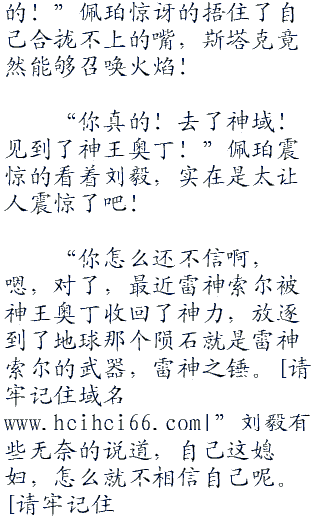 的！”佩珀惊讶的捂住了自
己合拢不上的嘴，斯塔克竟
然能够召唤火焰！
“你真的！去了神域！
见到了神王奥丁！”佩珀震
惊的看着刘毅，实在是太让
人震惊了吧！
“你怎么还不信啊，
嗯，对了，最近雷神索尔被
神王奥丁收回了神力，放逐
到了地球那个陨石就是雷神
索尔的武器，雷神之锤。[请
牢记住域名
www.hcihci66.com|”刘毅有
些无奈的说道，自己这媳
妇，怎么就不相信自己呢。
[请牢记住